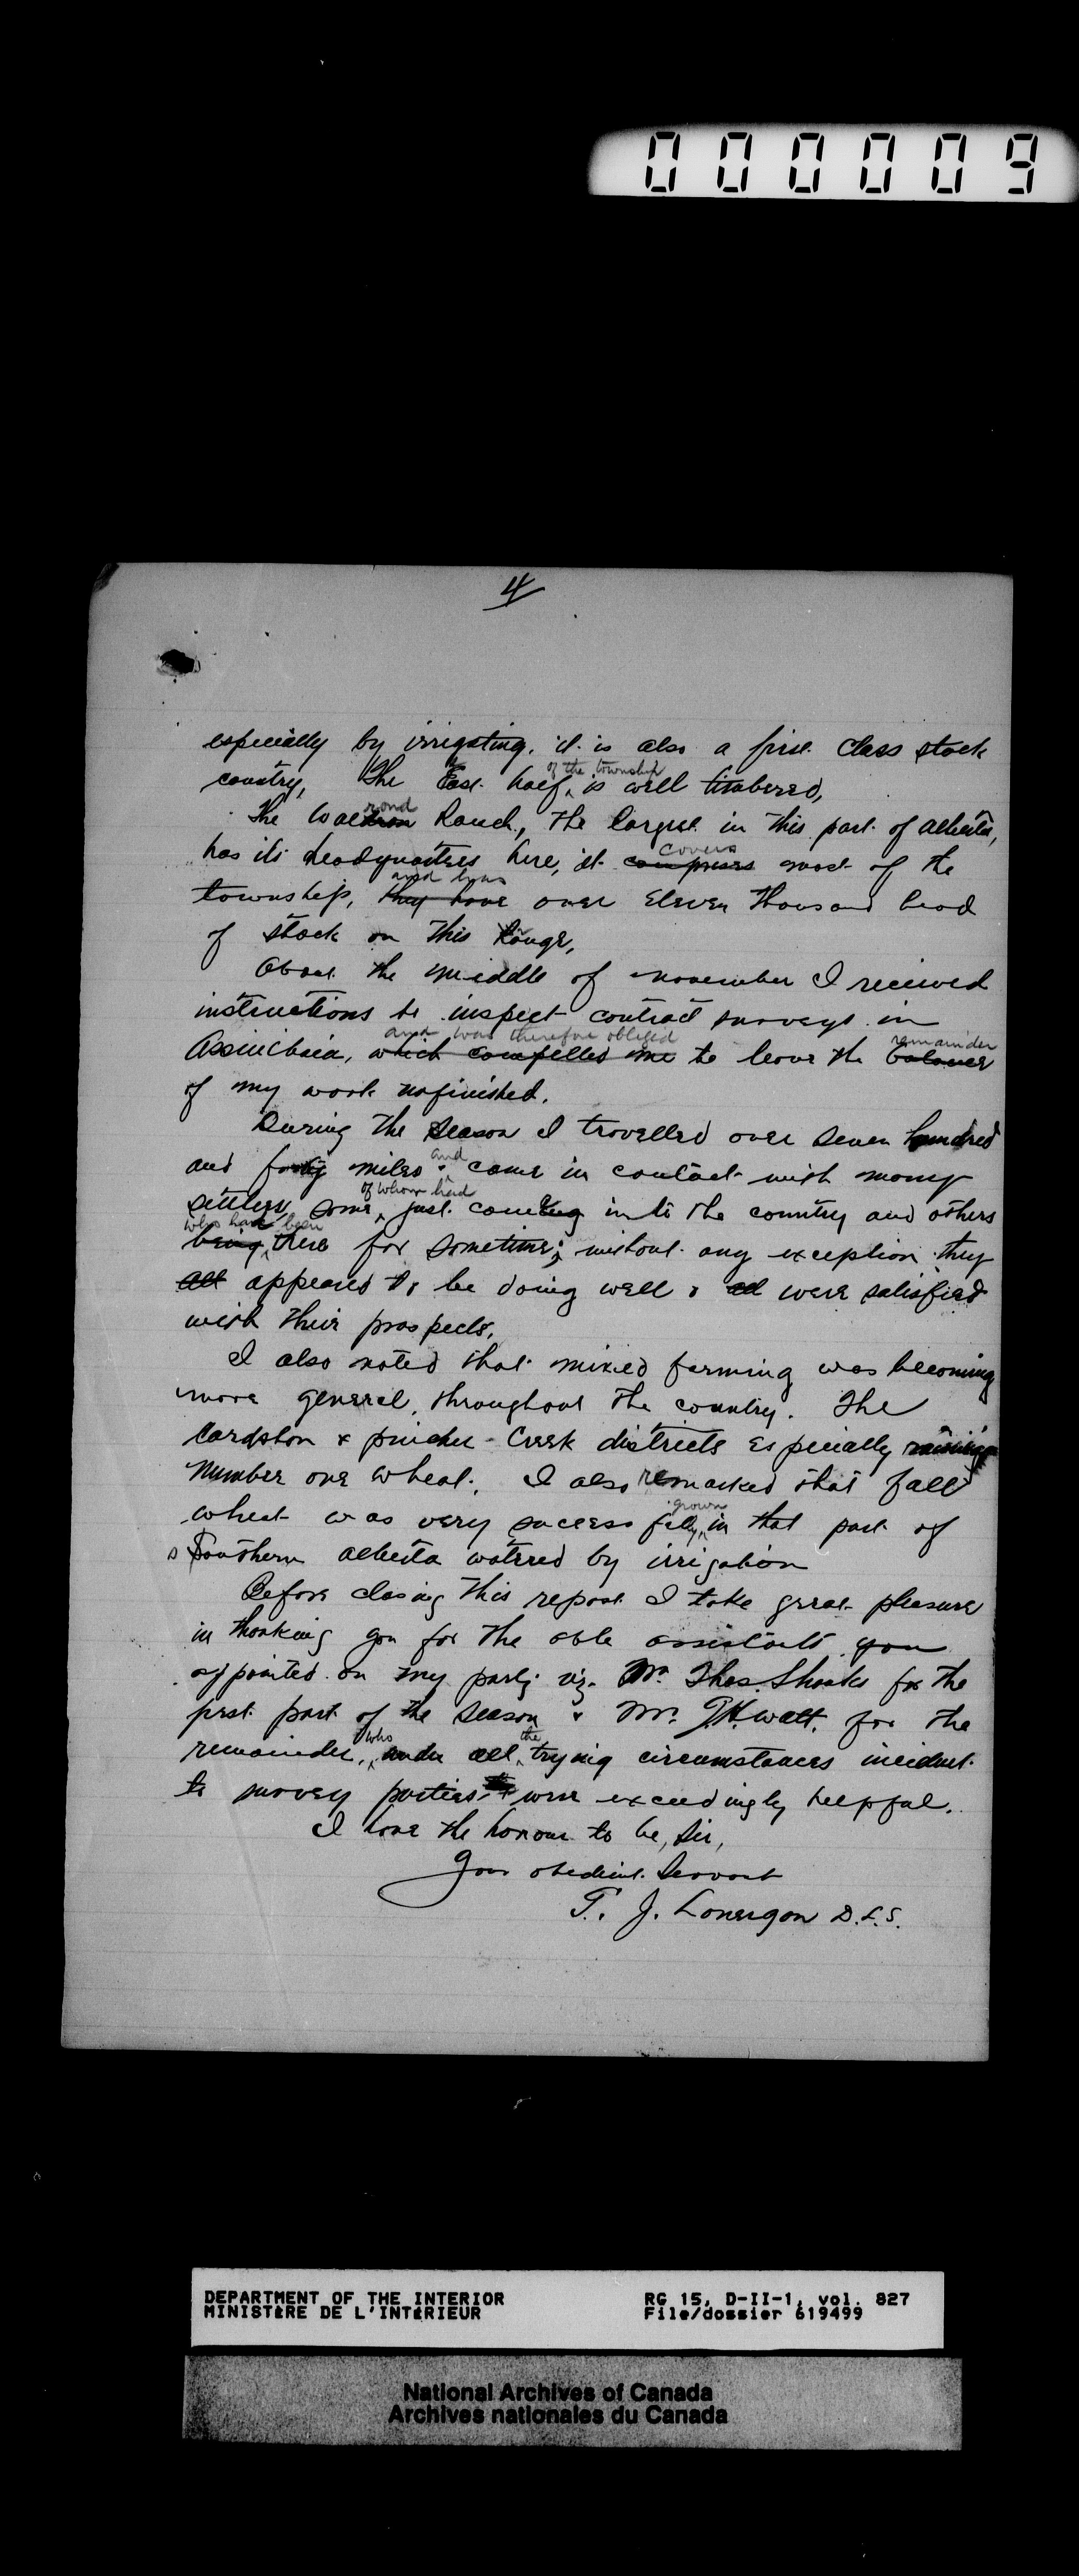 000009
4
especially by irrigating. it is also a first class stock
of the township
country, The East half, is well timbered,
rond
The Waldron Ranch, the largest in this part of alberta,
covers
has its headquarters here, it comprises most of the
and has
township, they have over eleven thousand head
of stock on this Range,
About the middle of november I received
instructions to inspect contract surveys in
and was therefore obliged remainder
Assiniboia, which compelled me to leave the balance
of my work unfinished.
During the Season I travelled over seven hundred
and
and forty miles & came in contact with many
of whom had
settlers, some, just coming in to the country and others
who have been
being there for sometime; without any exception they
all appeared to be doing well & all were satisfied
with their prospects,
I also noted that mixed farming was becoming
more general, throughout the country. The
Cardston & pincher-Creek districts especially raising
Number one wheat. I also remarked that fall
grown
wheat was very successfully in that part of
s Southern alberta watered by irrigation
Before closing this report I take great pleasure
in thanking you for the able assistants you
appointed on my party viz. Mr. Thos. Shanks for the
first part of the Season & Mr. G.H. Watt. for the
who the
remainder, under all trying circumstances incident
to survey parties, were exceedingly helpful.
I have the honour to be, Sir,
Your obedient Servant
T. J. Lonergan D.L.S.
DEPARTMENT OF THE INTERIOR
MINISTÈRE DE L'INTÉRIEUR
RG 15, D-II-1, vol. 827
File/dossier 619499
National Archives of Canada
Archives nationales du Canada